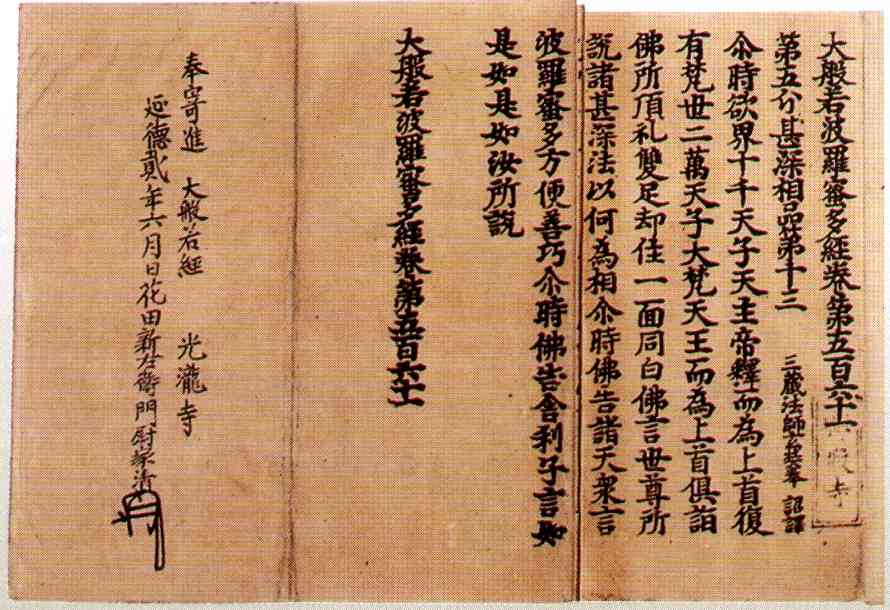 大般若波羅蜜多經卷第五百六十一
第五分甚深相品第十三
三藏法師玄奘奉 詔譯
尒時欲界十千天子天主帝釋而為上首復
有梵世二萬天子大梵天王而為上首俱詣
佛所頂礼雙足却住一面同白佛言世尊所
說諸甚深法以何為相尒時佛告諸天衆言
波羅蜜多方便善巧尒時佛告舍利子言如
是如是如汝所說
大般若波羅蜜多經卷第五百六十一
奉寄進 大般若經 光瀧寺
延德貳年六月日花田新右衛門尉家清